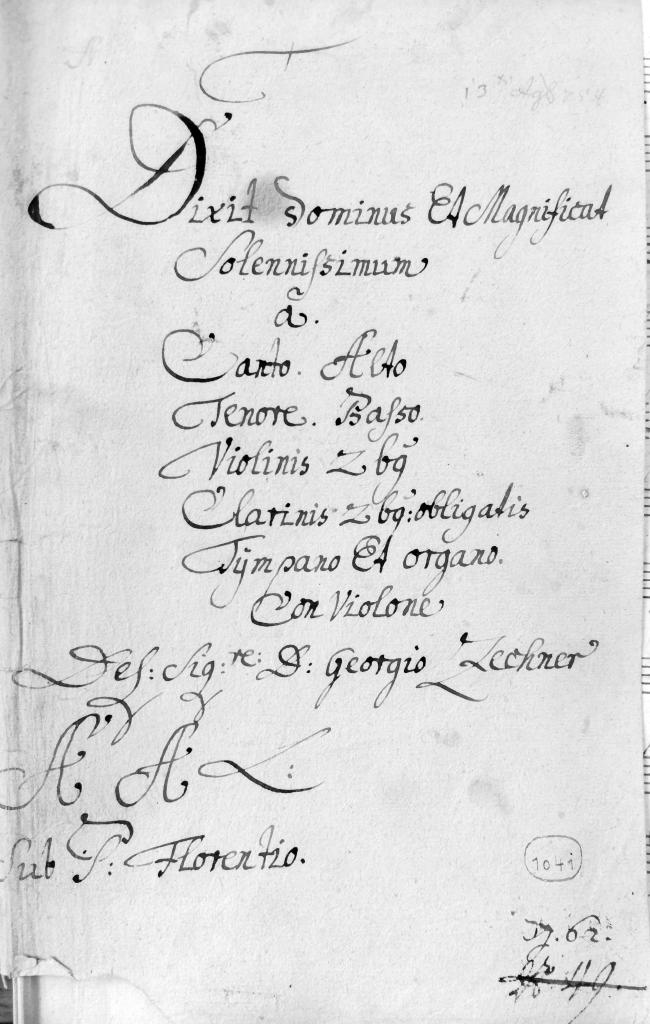 Dixit Dominus Et Magnificat
Solennissimum
â.
Canto. Alto
Tenore. Basso.
Violinis 2bꝰ
Clarinis 2bꝰ: obligatis
Tÿmpano Et organo.
Con Violone
Del: Sig:re: D: Georgio Zechner
A A L:
sub P: Florentio.
1041
62.
49.